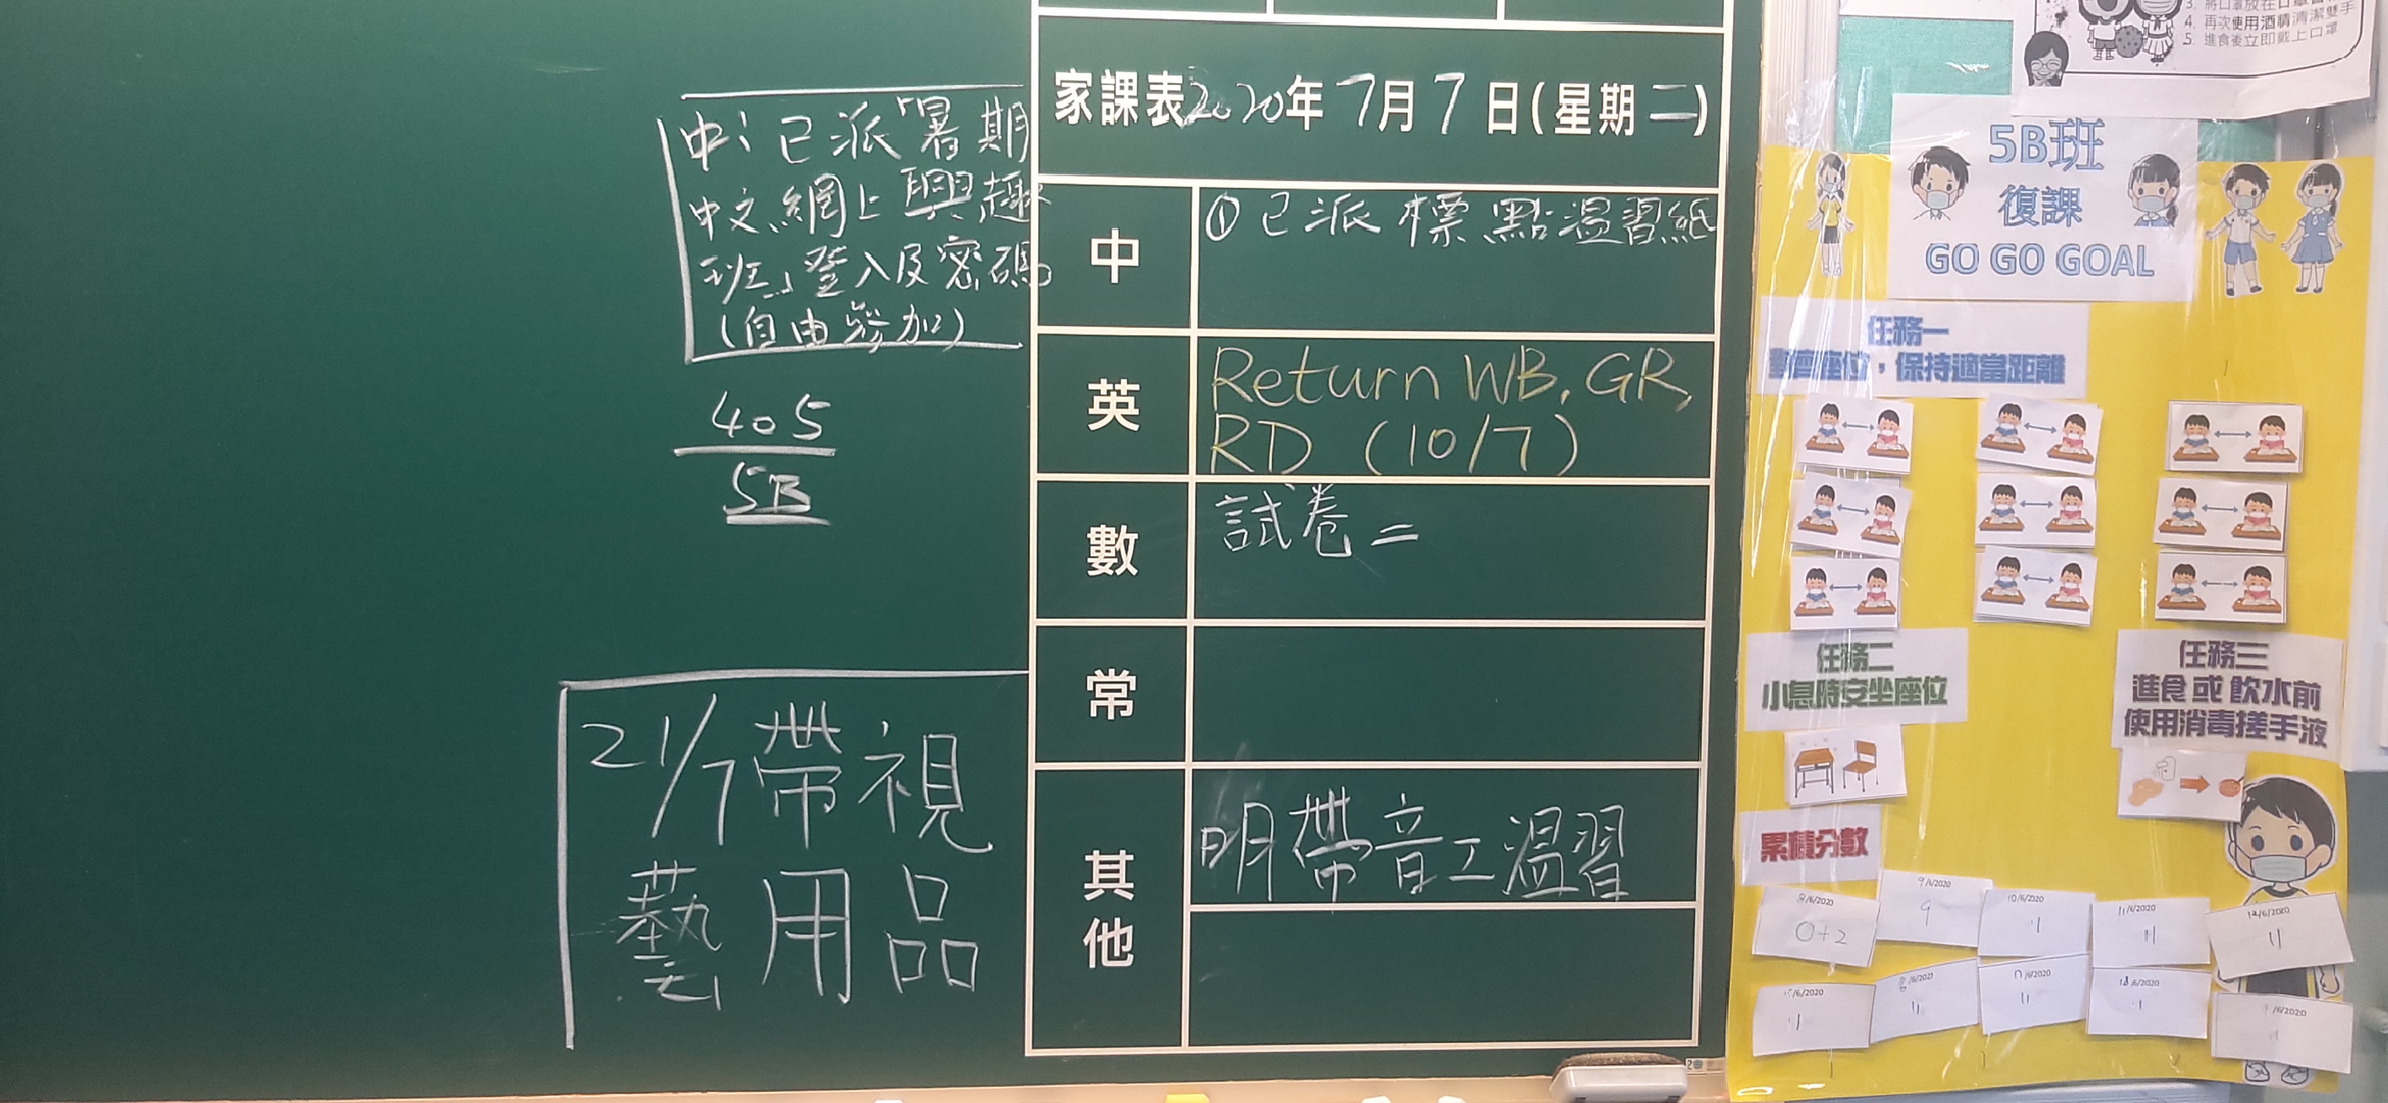 中：已派「暑期
中文網上興趣
班」登入及密碼
(自由參加)
405
5B
21/7帶視
藝用品
家課表2020年7月7日(星期二)
中
①已派標點溫習紙
英
Return WB, GR,
RD (10/7)
數
試卷二
常
其他
明帶音工溫習
4. 再次使用酒精清潔雙手
5. 進食後立即戴上口罩
5B班
復課
GO GO GOAL
任務一
座位，保持適當距離
任務二
小息時安坐座位
任務三
進食或飲水前
使用消毒搓手液
累積分數
8/6/2020
0+2
9/6/2020
9
10/6/2020
11
11/6/2020
11
12/6/2020
11
/6/2020
11
/6/2020
11
/6/2020
11
18/6/2020
11
/6/2020
11